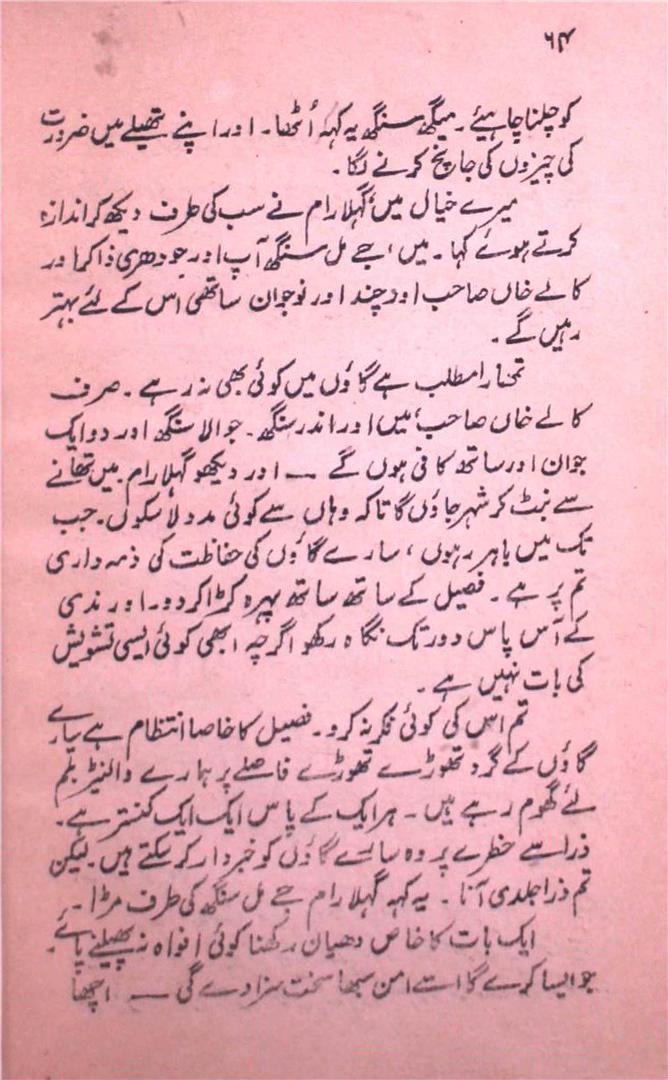 ۶۴
کو چلنا چاہیئے ۔ میگھ سنگھ یہ کہہ اُٹھا ۔ اور اپنے تھیلے میں ضرورت
کی چیزوں کی جانچ کرنے لگا ۔
میرے خیال میں، گہلا رام نے سب کی طرف دیکھ کر اندازہ
کرتے ہوئے کہا ۔ میں، جے مل سنگھ آپ اور چودھری ذاکر اور
کالے خاں صاحب اور چند اور نوجوان ساتھی اس کے لئے بہتر
رہیں گے ۔
تمھارا مطلب ہے گاؤں میں کوئی بھی نہ رہے ۔ صرف
کالے خاں صاحب، میں اور اندر سنگھ ۔ جوالا سنگھ اور دو ایک
جوان اور ساتھ کافی ہوں گے — اور دیکھو گہلا رام میں تھانے
سے نبٹ کر شہر جاؤں گا تاکہ وہاں سے کوئی مدد لا سکوں ۔ جب
تک میں باہر رہوں، سارے گاؤں کی حفاظت کی ذمہ داری
تم پر ہے ۔ فصیل کے ساتھ ساتھ پہرہ کڑا کر دو ۔ اور ندی
کے آس پاس دور تک نگاہ رکھو اگرچہ ابھی کوئی ایسی تشویش
کی بات نہیں ہے ۔
تم اس کی کوئی فکر نہ کرو ۔ فصیل کا خاصا انتظام ہے سارے
گاؤں کے گرد تھوڑے تھوڑے فاصلے پر ہمارے والنیڑ بلم
لئے گھوم رہے ہیں ۔ ہر ایک کے پاس ایک ایک کنستر ہے ۔
ذرا سے خطرے پر وہ سارے گاؤں کو خبردار کر سکتے ہیں ۔ لیکن
تم ذرا جلدی آنا ۔ یہ کہہ گہلا رام جے مل سنگھ کی طرف مڑا ۔
ایک بات کا خاص دھیان رکھنا کوئی افواہ نہ پھیلنے پائے ۔
جو ایسا کرے گا اسے امن سبھا سخت سزا دے گی — اچھا